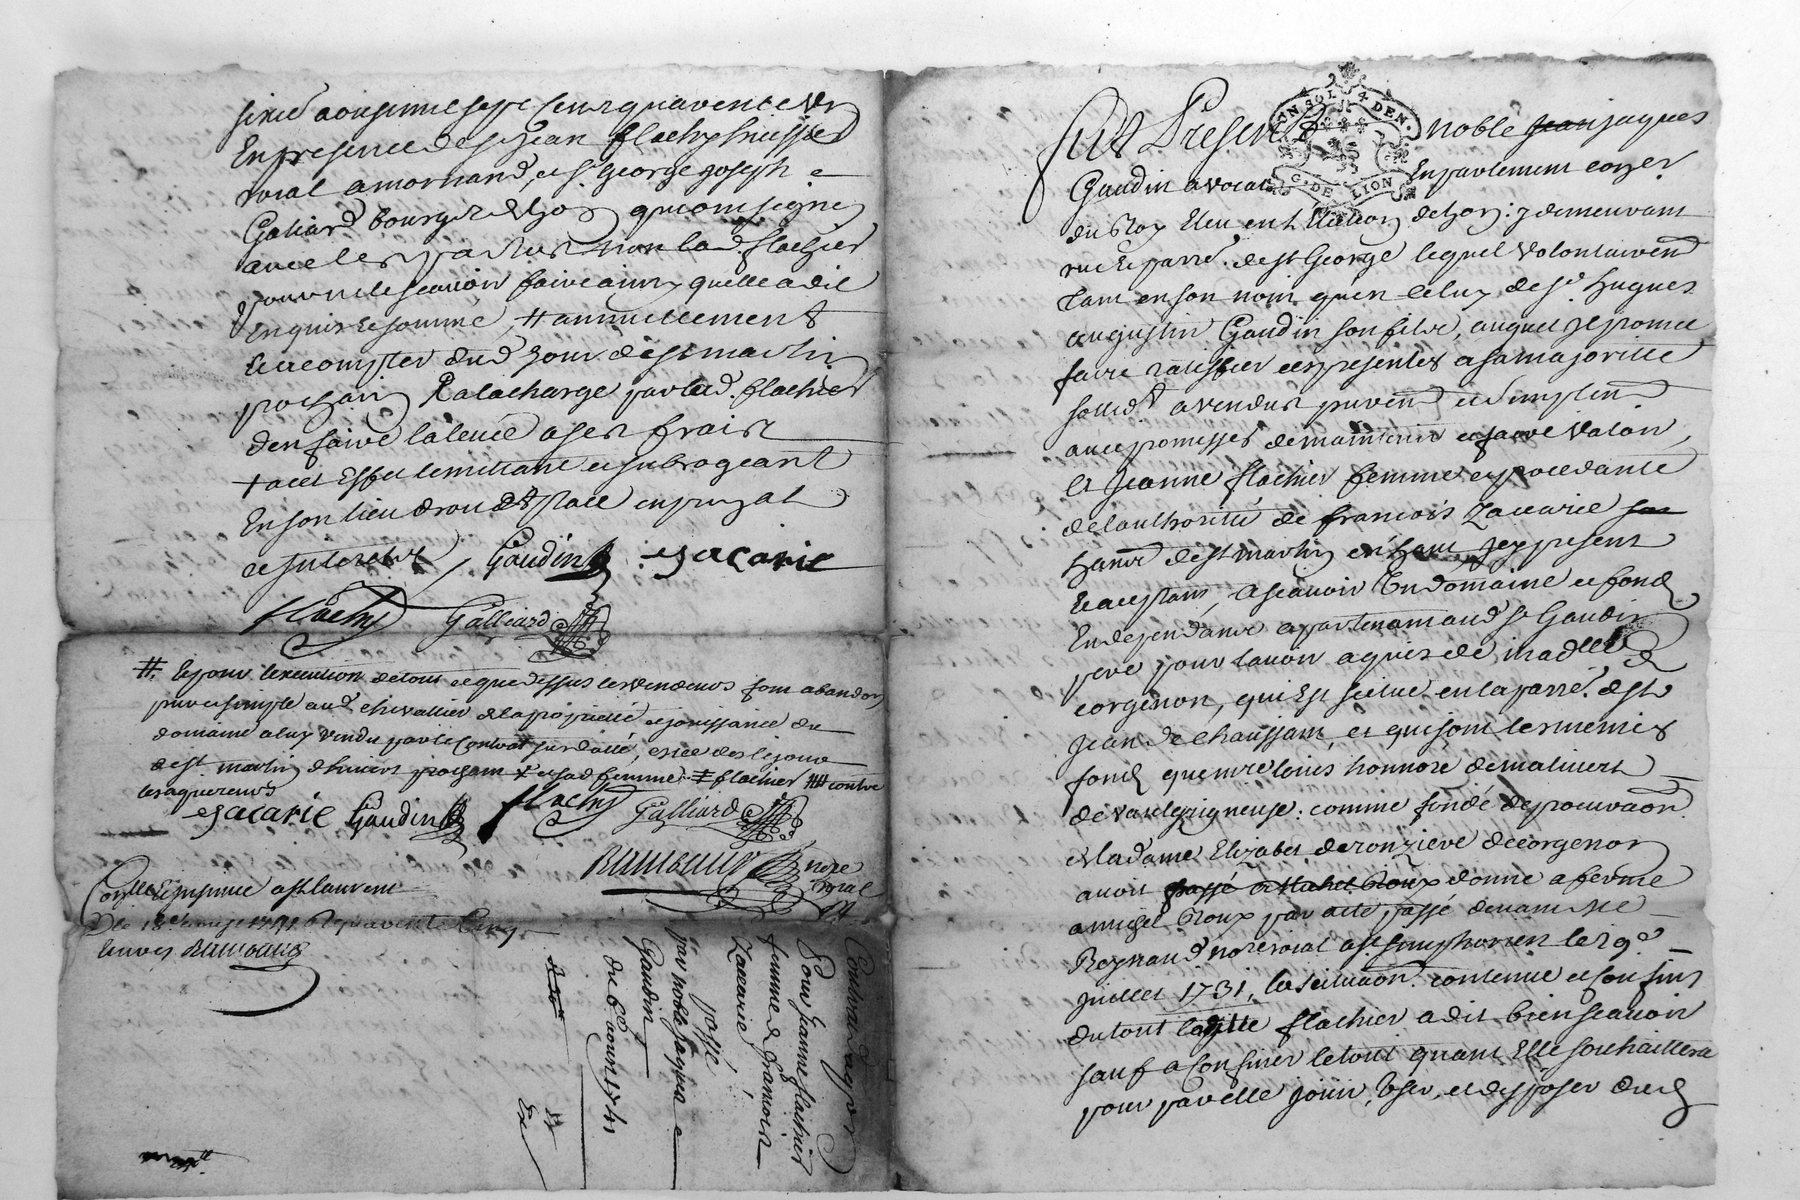 sixe aoust mil sept cent quarente Un
En presence de sr jean flachy huissier
roial a mornand, et sr George joseph
Galiard bourgr de Lyon qui ont signé
avec les parties non lad. flachier
pour ne le scavoir faire ainsy quelle a dit
Enquise et sommé, # annuellement
Et a compter dud. jour de st martin
prochain & a la charge par lad. flachier
den faire la levée a ses frais
+ a cet Effet le mettant et subrogeant
En son lieu droit et place en prin.al
et interets / Gaudin esacarie
flachy Galliard
#. Et pour l'execution de tout ce que dessus les vendeurs font abandon
pur et simple aud. chevallier de la proprietté et jouissance du
domaine a luy vendu par le Contrat susdatté, et ce des le jour
de st martin d'hivert prochain x et sad. femme. ≠ flachier ## contre
les aquereurs
esacarie Gaudin flachy Galliard
Raimbaud nore
roial
Conllé Et insinué a st laurent
Le 18e aoust 1741
Raimbaud
Contrat d'aqon
Pour Jeanne flachier
femme de francois
Zacarie
passé
par noble jaques
Gaudin
du 6e aoust 1741
Fut Present noble jean jaques
UN SOL 4 DEN.
G. DE LION
Gaudin avocat En parlement coner
du Roy Eleu en L'Election de Lyon: y demeurant
rue Et parre. de st George lequel volontairemt
tant en son nom qu'en celuy de sr. hugues
augustin Gaudin son fils, auquel jl promet
faire ratiffier ces presentes a sa majorité
sollidt a vendu purent et simplent
avec promesses de maintenir et faire valoir,
a Jeanne flachier femme et procedante
de l'authorité de francois Zaccarie son
hanr de st martin en haut jcy present
Et acceptant, a scavoir Un domaine et fond
En dependant appartenant aud sr Gaudin
pere pour l'avoir aquis de madlle
corgenon, qui Est scitué en la parre. de st
Jean de chaussant, et qui sont les memes
fond que mre louis honnoré de malivert
de vauldgrigneuse: comme fondé de procuraon
de dame Elizabet de ronziere de corgenon
avoit passé a Michel Roux donné a ferme
a michel Roux par acte passé devant me
Reynaud nore roial a st simphorien le 29e
juillet 1731, la scituaon. contenue et confins
du tout laditte flachier a dit bien scavoir
sauf a confiner le tout quant Elle souhaittera
pour par elle jouir, User, et disposer dud